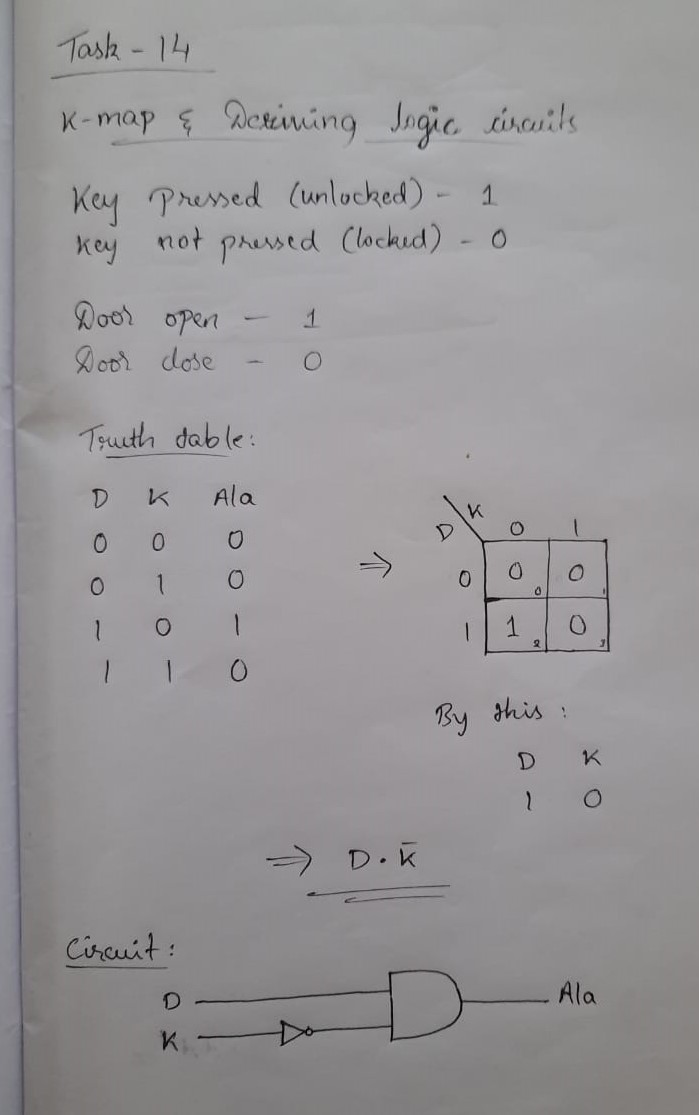 Task - 14
K-map & Deriving logic circuits
Key Pressed (unlocked) - 1
Key not pressed (locked) - 0
Door open - 1
Door close - 0
Truth table:
D K Ala
0 0 0
0 1 0
1 0 1
1 1 0
⇒
K
D 0 1
0 0 0 0 1
1 1 2 0 3
By this :
D K
1 0
⇒ D . K̄
Circuit :
D
K
Ala